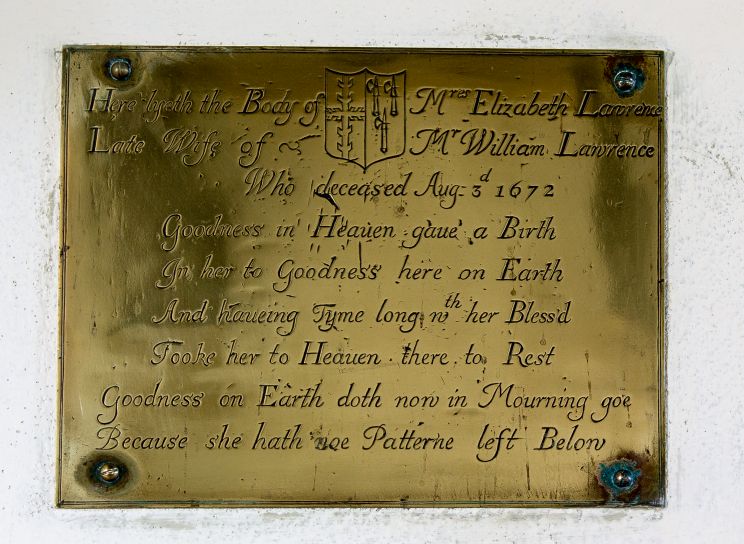 Here lyeth the Body of Mres Elizabeth Lawrence
Late Wife of Mr William Lawrence
Who deceased Aug 3d 1672
Goodness in Heauen gaue a Birth
In her to Goodness here on Earth
And haueing Tyme long wth her Bless'd
Tooke her to Heauen there to Rest
Goodness on Earth doth now in Mourning goe
Because she hath noe Patterne left Below